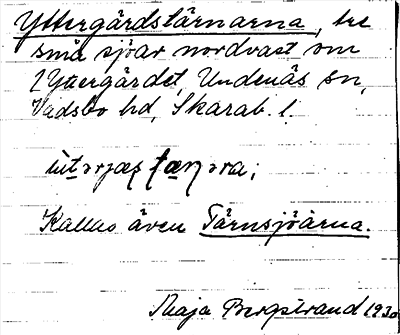 Yttergärdstärnarna, tre
små sjöar nordväst om
Yttergärdet, Undenäs sn,
Vadsbo hd, Skarab. l.
Kallas även Tärnsjöarna.
Maja Bergstrand 1930